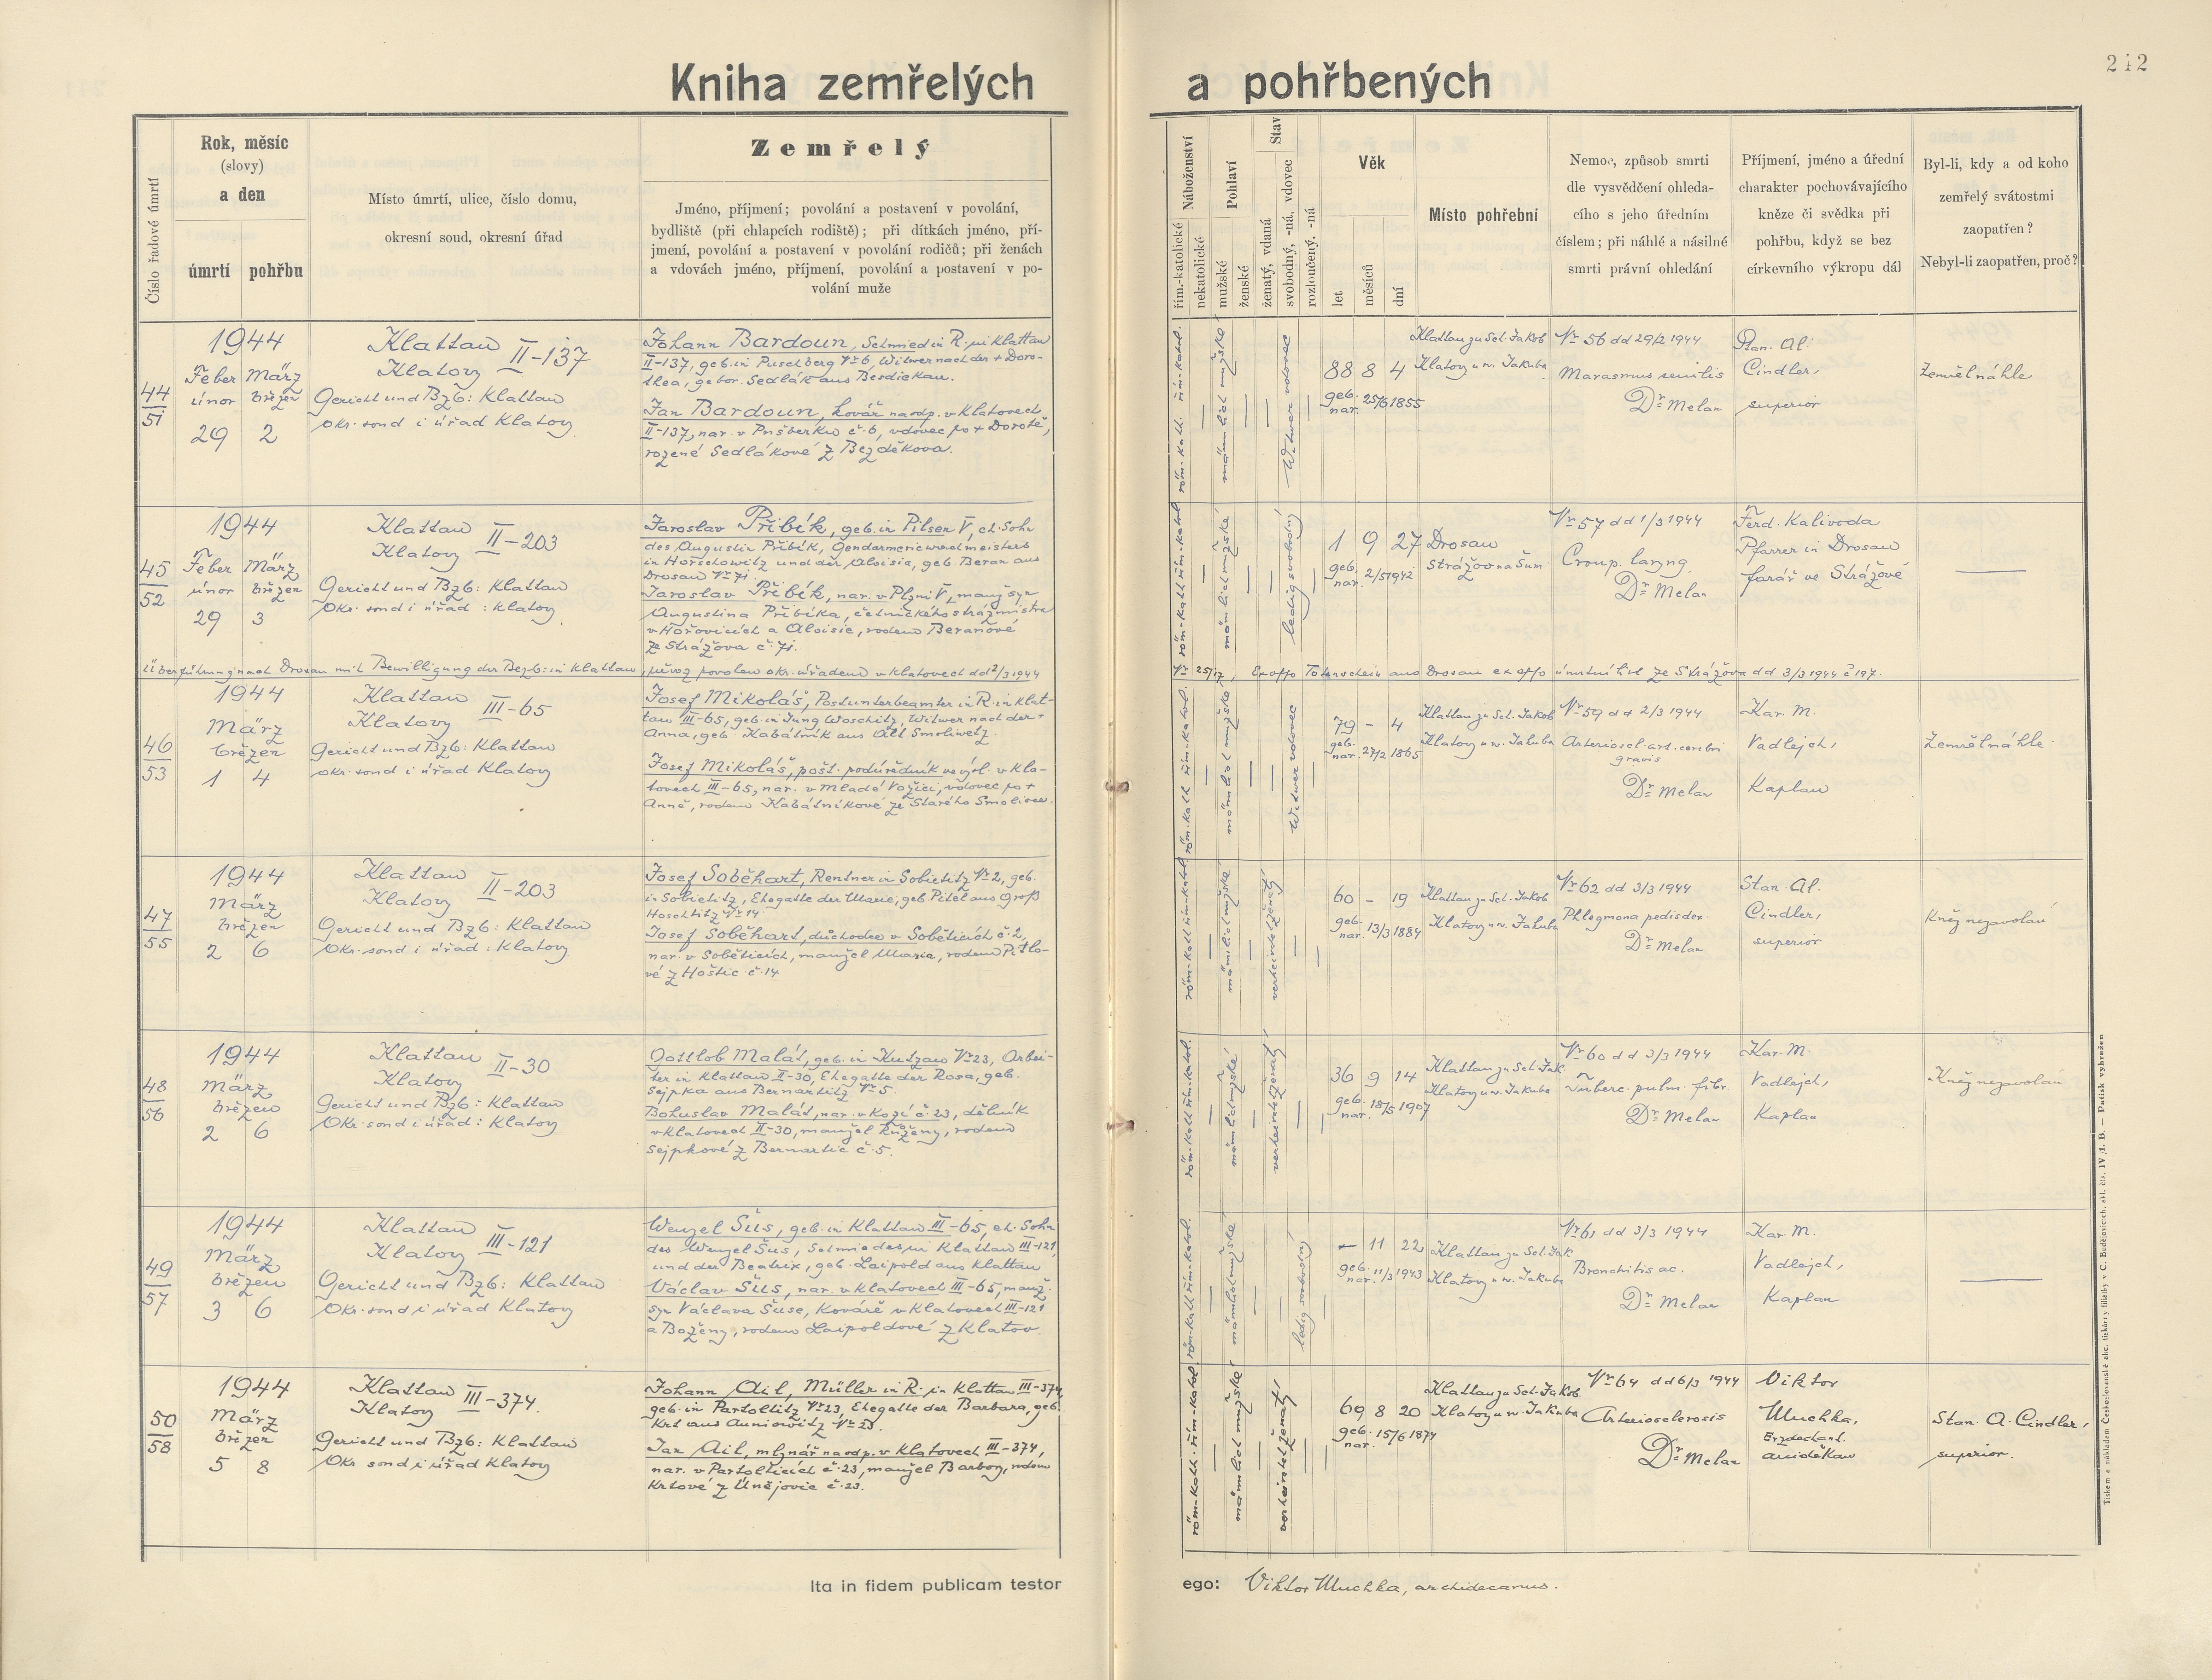 Kniha zemřelých a pohřbených
242
Číslo řadové úmrtí
Rok, měsíc
(slovy)
a den
úmrtí
pohřbu
Místo úmrtí, ulice, číslo domu,
okresní soud, okresní úřad
Zemřelý
Jméno, příjmení; povolání a postavení v povolání,
bydliště (při chlapcích rodiště); při dítkách jméno, pří-
jmení, povolání a postavení v povolání rodičů; při ženách
a vdovách jméno, příjmení, povolání a postavení v po-
volání muže
Náboženství
řím.-katolické
nekatolické
Pohlaví
mužské
ženské
Stav
ženatý, vdaná
svobodný, -ná, vdovec
rozloučený, -ná
Věk
let
měsíců
dní
Místo pohřební
Nemoc, způsob smrti
dle vysvědčení ohleda-
cího s jeho úředním
číslem; při náhlé a násilné
smrti právní ohledání
Příjmení, jméno a úřední
charakter pochovávajícího
kněze či svědka při
pohřbu, když se bez
církevního výkropu dál
Byl-li, kdy a od koho
zemřelý svátostmi
zaopatřen?
Nebyl-li zaopatřen, proč?
44
51
1944
Feber März
únor březen
29 2
Klattau II-137
Klatovy
Gericht und Bzb: Klattau
Okr. soud i úřad Klatovy
Johann Bardoun, Schmied in R. in Klattau
II-137, geb. in Puschberg Nr 6, Witwer nach der + Doro-
thea, gebor. Sedlák aus Besdiekau.
Jan Bardoun, kovář na odp. v Klatovech
II-137, nar. v Pušberku č. 6, vdovec po + Dorotě,
rozené Sedlákové z Bezděkova.
röm.-kath. řím.-katol.
männlich mužské
Witwer vdovec
88 8 4
geb. nar. 25/6 1855
Klattau zu Sct. Jakob
Klatovy u sv. Jakuba
Nr 56 dd 29/2 1944
Marasmus senilis
Dr Melan
Stan. Al.
Cindler,
superior
Zemřel náhle
45
52
1944
Feber März
únor březen
29 3
Klattau II-203
Klatovy
Gericht und Bzb: Klattau
Okr. soud i úřad: Klatovy
Jaroslav Přibík, geb. in Pilsen V, eh. Sohn
des Augustin Přibík, Gendarmeriewachtmeisters
in Hořschowitz und der Aloisia, geb. Beran aus
Drosau Nr 71.
Jaroslav Přibík, nar. v Plzni V, manž. syn
Augustina Přibíka, četnického strážmistra
v Hořovicích a Aloisie, rodem Beranové
ze Strážova č. 71.
röm.-kath. řím.-katol.
männlich mužské
ledig svobodný
1 9 27
geb. nar. 2/5 1942
Drosau
Strážov na Šum.
Nr 57 dd 1/3 1944
Croup. laryng.
Dr Melan
Ferd. Kalivoda
Pfarrer in Drosau
farář ve Strážově
Überführung nach Drosau mit Bewilligung der Bezb: in Klattau, převoz povolen okr. úřadem v Klatovech dd 2/3 1944
Nr 2517, Ex offo Totenschein aus Drosau ex offo úmrtní list ze Strážova dd 3/3 1944 č 197.
46
53
1944
März
březen
1 4
Klattau III-65
Klatovy
Gericht und Bzb: Klattau
okr. soud i úřad Klatovy
Josef Mikoláš, Postunterbeamter in R. in Klat-
tau III-65, geb. in Jung Woschitz, Witwer nach der +
Anna, geb. Kabátník aus Alt Smoliwetz.
Josef Mikoláš, pošt. podúředník ve výsl. v Kla-
tovech III-65, nar. v Mladé Vožici, vdovec po +
Anně, rodem Kabátníkové ze Starého Smolivce.
röm.-kath. řím.-katol.
männlich mužské
Witwer vdovec
79 – 4
geb. nar. 27/2 1865
Klattau zu Sct. Jakob
Klatovy u sv. Jakuba
Nr 59 dd 2/3 1944
Arterioscl. art. cerebri
gravis
Dr Melan
Kar. M.
Vadlejch,
Kaplan
Zemřel náhle
47
55
1944
März
březen
2 6
Klattau II-203
Klatovy
Gericht und Bzb: Klattau
Okr. soud i úřad: Klatovy
Josef Soběhart, Rentner in Sobietitz Nr 2, geb.
in Sobietitz, Ehegatte der Marie, geb. Pitel aus Groß
Hoschtitz Nr 14
Josef Soběhart, důchodce v Soběticích č. 2,
nar. v Soběticích, manžel Marie, rodem Pitlo-
vé z Hoštic č. 14
röm.-kath. řím.-katol.
männlich mužské
verheiratet ženatý
60 – 19
geb. nar. 13/3 1884
Klattau zu Sct. Jakob
Klatovy u sv. Jakuba
Nr 62 dd 3/3 1944
Phlegmona pedis dex.
Dr Melan
Stan. Al.
Cindler,
superior
Kněz nezavolán
48
56
1944
März
březen
2 6
Klattau II-30
Klatovy
Gericht und Bzb: Klattau
Okr. soud i úřad: Klatovy
Gottlob Malát, geb. in Kutzau Nr 23, Arbei-
ter in Klattau II-30, Ehegatte der Rosa, geb.
Sejpka aus Bernartitz Nr 5.
Bohuslav Malát, nar. v Kozí č. 23, dělník
v Klatovech II-30, manžel Růženy, rodem
Sejpkové z Bernartic č. 5.
röm.-kath. řím.-katol.
männlich mužské
verheiratet ženatý
36 9 14
geb. nar. 18/5 1907
Klattau zu Sct. Jak.
Klatovy u sv. Jakuba
Nr 60 dd 3/3 1944
Tuberc. pulm. fibr.
Dr Melan
Kar. M.
Vadlejch,
Kaplan
Kněz nezavolán
49
57
1944
März
březen
3 6
Klattau III-121
Klatovy
Gericht und Bzb: Klattau
Okr. soud i úřad Klatovy
Wenzel Šus, geb. in Klattau III-65, eh. Sohn
des Wenzel Šus, Schmiedes in Klattau III-121,
und der Beatrix, geb. Laipold aus Klattau
Václav Šus, nar. v Klatovech III-65, manž.
syn Václava Šuse, kováře v Klatovech III-121
a Boženy, rodem Laipoldové z Klatov.
röm.-kath. řím.-katol.
männlich mužské
ledig svobodný
– 11 22
geb. nar. 11/3 1943
Klattau zu Sct. Jak.
Klatovy u sv. Jakuba
Nr 61 dd 3/3 1944
Bronchitis ac.
Dr Melan
Kar. M.
Vadlejch,
Kaplan
50
58
1944
März
březen
5 8
Klattau III-374
Klatovy
Gericht und Bzb: Klattau
Okr. soud i úřad Klatovy
Johann Ail, Müller in R. in Klattau III-374,
geb. in Partoltitz Nr 23, Ehegatte der Barbara, geb.
Krt aus Auniowitz Nr 23.
Jan Ail, mlynář na odp. v Klatovech III-374,
nar. v Partolticích č. 23, manžel Barbory, rodem
Krtové z Únějovic č. 23.
röm.-kath. řím.-katol.
männlich mužské
verheiratet ženatý
69 8 20
geb. nar. 15/6 1874
Klattau zu Sct. Jakob
Klatovy u sv. Jakuba
Nr 64 dd 6/3 1944
Arteriosclerosis
Dr Melan
Viktor
Muchka,
Erzdechant.
arciděkan
Stan. A. Cindler,
superior.
Ita in fidem publicam testor ego: Viktor Muchka, archidecanus.
Tiskem a nákladem Českoslovanské akc. tiskárny filiálky v Č. Budějovicích. skl. čís. IV/1. B. — Patisk vyhražen